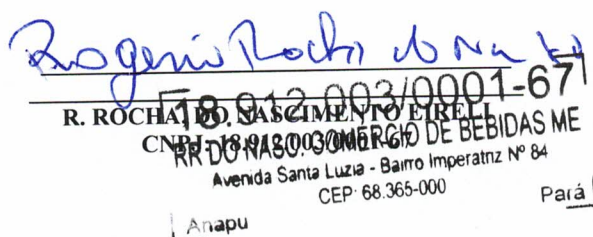 Rogerio Rocha do Na
18.912.003/0001-67
R. ROCHA DO NASCIMENTO EIRELI
CNPJ: 18.912.003/0001-67
RR DO NASC. COMERCIO DE BEBIDAS ME
Avenida Santa Luzia - Bairro Imperatriz Nº 84
CEP: 68.365-000
Anapu Pará